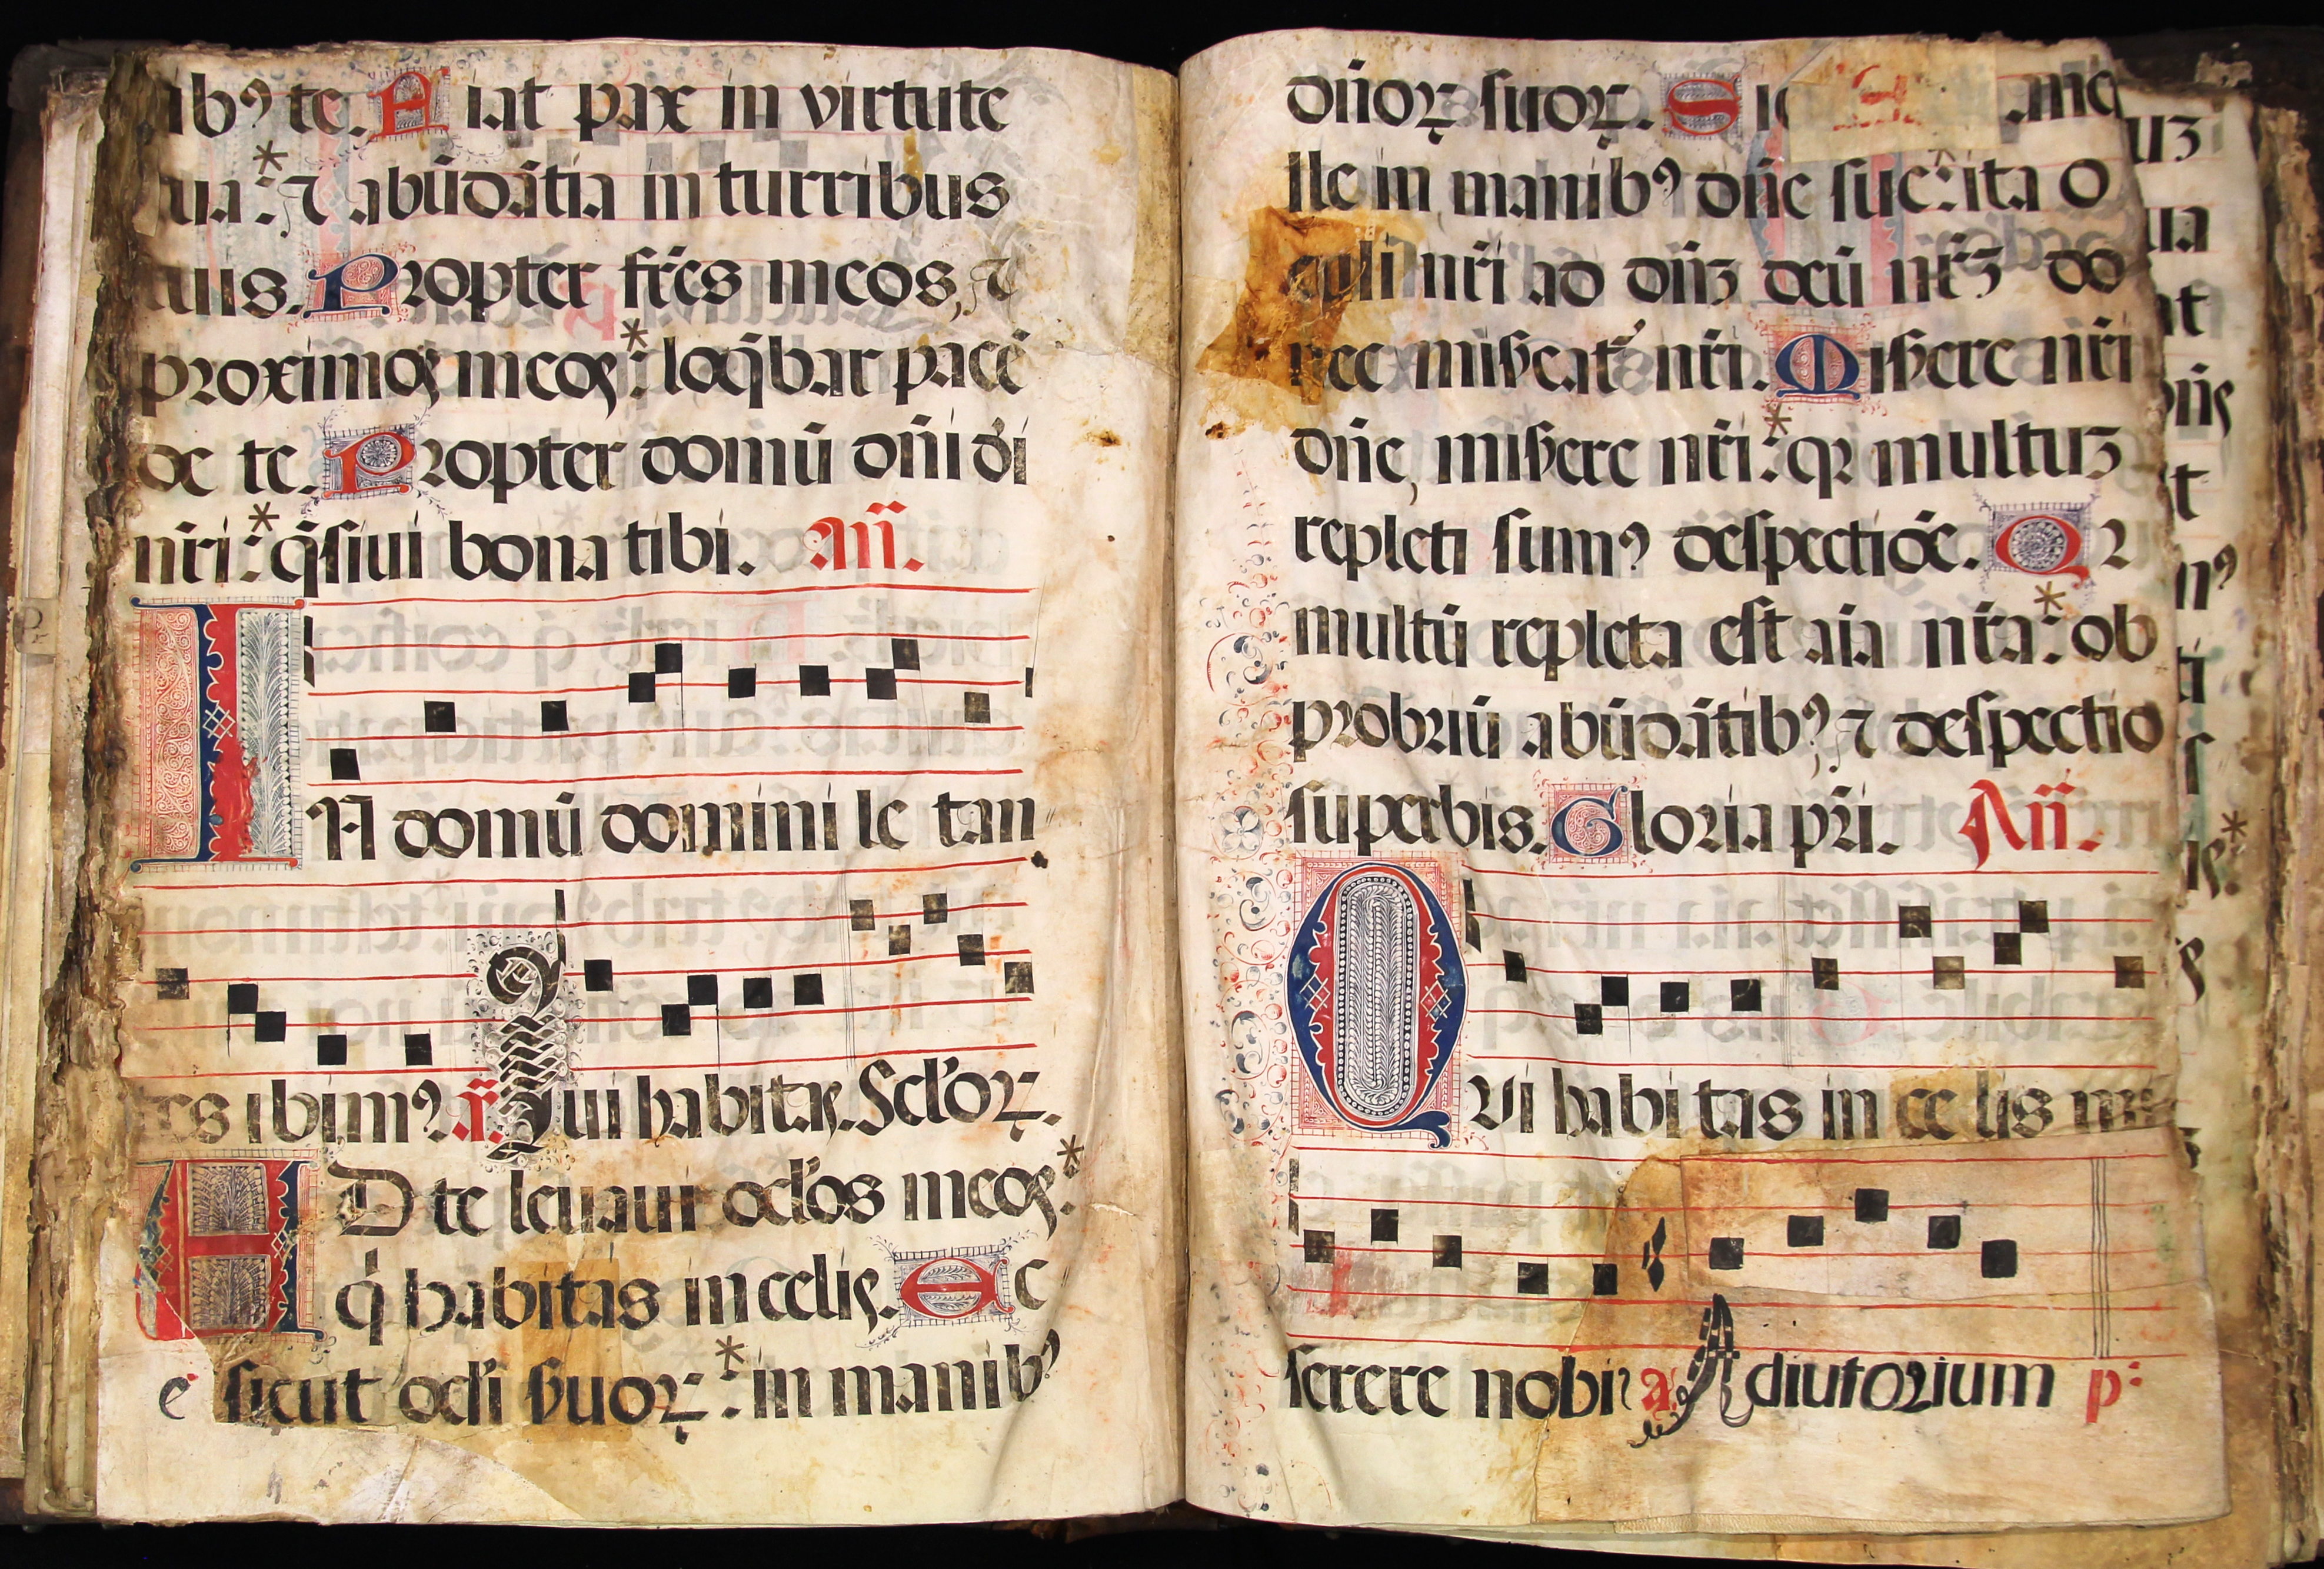 ibꝰ te. Fiat pax in virtute
tua:* ⁊ abūdātia in turribus
tuis. Propter fr̄es meos, ⁊
proximos meos:* loq̄bar pacē
de te. Propter domū dñi d̄i
nr̄i:* q̄siui bona tibi. Añ.
IN domū domini le tan
tes ibimꝰ. ℟. Qui habitas. Sclꝰoꝝ.
AD te leuaui oclꝰos meos:*
q̇ habitas in celis. Ec
ce sicut oclꝰi ẜuoꝝ:* in manibꝰ
dñoꝝ suoꝝ. Sic
lle in manibꝰ dñe sue:* ita o
culi nr̄i ad dñʒ deū nr̄ʒ do
nec miẜeatᷣ nr̄i. Miẜere nr̄i
dñe, miẜere nr̄i:* qꝛ multuʒ
repleti sumꝰ despectiōe. Qꝛ
multū repleta est aīa nr̄a:* ob
probriū abūdātibꝰ, ⁊ despectio
superbis. Gloria pr̄i. Añ.
QVi habitas in ce lis mi
serere nobis a. Adiutorium p: